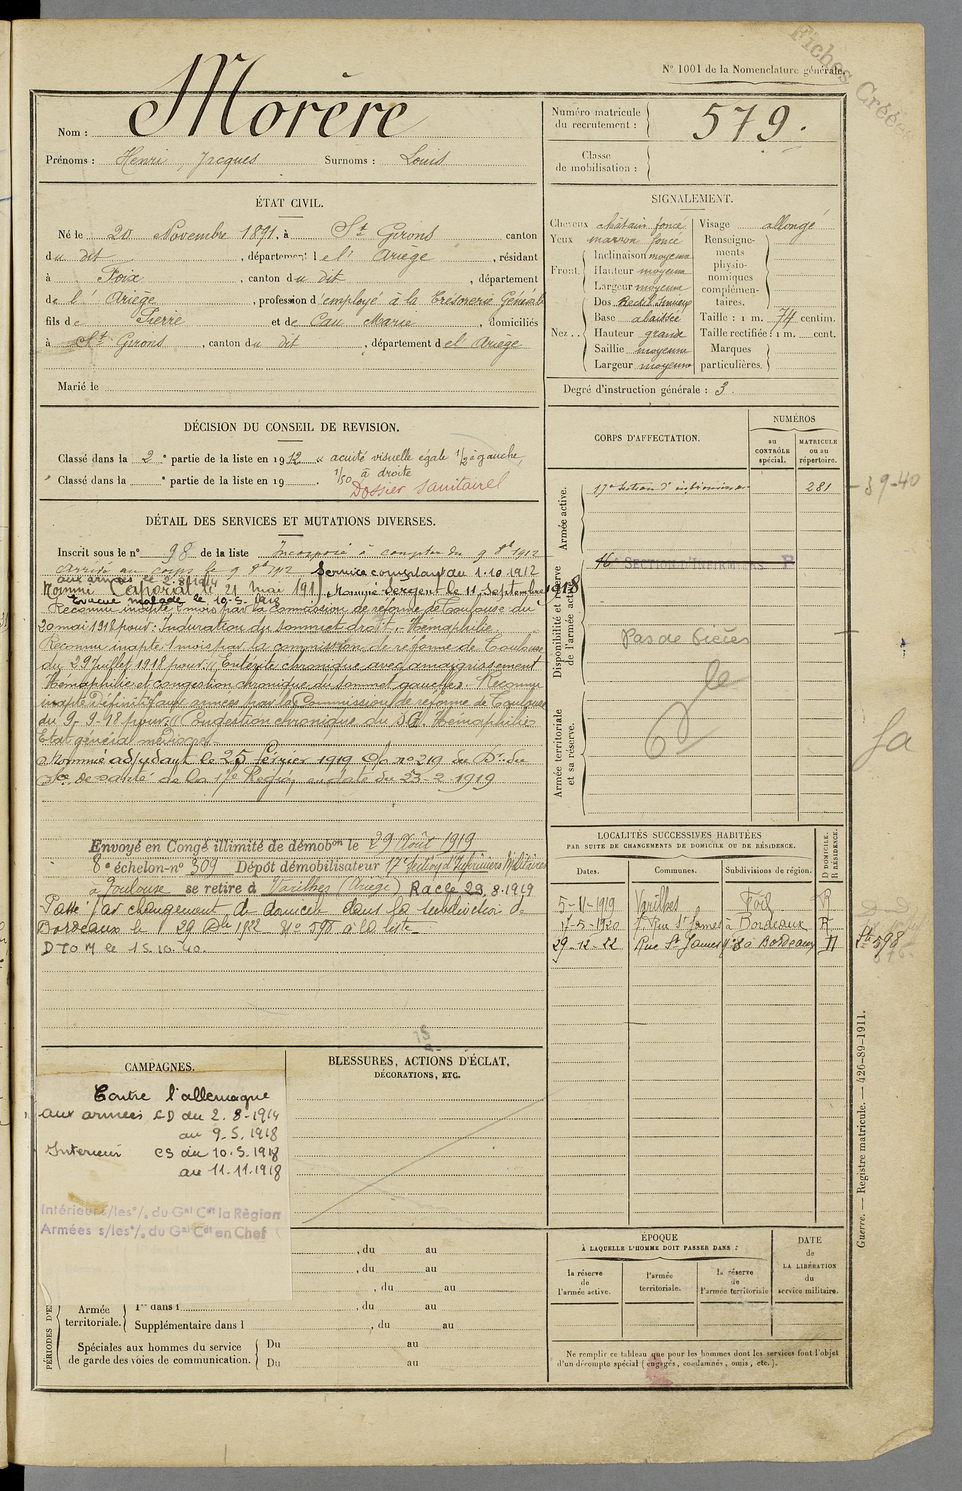 Fiches Créées
N° 1001 de la Nomenclature générale.
Nom : Morère
Prénoms : Henri, Jacques Surnoms : Louis
Numéro matricule du recrutement : 579.
Classe de mobilisation :
ÉTAT CIVIL.
Né le 20 Novembre 1891, à St Girons canton
du dit, département de l' Ariège, résidant
à Foix, canton du dit, département
de l' Ariège, profession d'employé à la Trésorerie Générale
fils de Pierre et de Cau Marie, domiciliés
à St Girons, canton du dit, département de l'Ariège
Marié le
SIGNALEMENT.
Cheveux châtain foncé
Yeux marron foncé
Front. Inclinaison moyenne
Hauteur moyenne
Largeur moyenne
Nez. Dos Rectil. Sinueux
Base abaissée
Hauteur grande
Saillie moyenne
Largeur moyenne
Visage allongé
Renseignements physionomiques complémentaires.
Taille : 1 m. 74 centim.
Taille rectifiée : 1 m. cent.
Marques particulières.
Degré d'instruction générale : 3
DÉCISION DU CONSEIL DE REVISION.
Classé dans la 2e partie de la liste en 1912 « acuité visuelle égale 1/2 à gauche,
1/50 à droite
Classé dans la e partie de la liste en 19 .
Dossier sanitaire
DÉTAIL DES SERVICES ET MUTATIONS DIVERSES.
Inscrit sous le n° 98 de la liste Incorporé à compter du 9 8bre 1912
Arrivé au corps le 9 8bre 1912 Service comptant du 1.10.1912
aux armées le 2.8.1914
Nommé Caporal le 21 Mai 191 , Nommé Sergent le 11 Septembre 1918
Evacué malade le 10.5.1918
Reconnu inapte 2 mois par la commission de réforme de Toulouse du
20 mai 1918 pour : Induration du sommet droit. Hémophilie
Reconnu inapte 1 mois par la commission de réforme de Toulouse
du 29 Juillet 1918 pour : Entérite chronique avec amaigrissement
Hémophilie et congestion chronique du sommet gauche. Reconnu
inapte Définitif aux armées par la Commission de réforme de Toulouse
du 9-9-18 pour : Congestion chronique du S.G. Hémophilie
Etat général médiocre.
Nommé adjudant le 25 février 1919 n° 219 du Dr. du
Sce de santé de la 17e Région en date du 23.2.1919
Envoyé en Congé illimité de démobon le 29 Août 1919
8e échelon-n° 309 Dépôt démobilisateur 17e Section d'Infirmiers Militaires
à Toulouse se retire à Varilhes (Ariège) Rac le 29.8.1919
Passé par changement de domicile dans la subdivision de
Bordeaux le 29 Dbre 1922 N° 598 à la liste
DTOM le 15.10.40.
CORPS D'AFFECTATION.
NUMÉROS
au CONTRÔLE spécial.
MATRICULE ou au répertoire.
Armée active.
17e Section d'infirmiers 281
39-40
Disponibilité et réserve de l'armée active.
16e SECTION D'INFIRMIERS F
Pas de Pièces
Armée territoriale et sa réserve.
LOCALITÉS SUCCESSIVES HABITÉES
PAR SUITE DE CHANGEMENTS DE DOMICILE OU DE RÉSIDENCE.
D DOMICILE. R RÉSIDENCE.
Dates. Communes. Subdivisions de région.
5-11-1919 Varilhes Foix R
7-5-1920 Rue St James à Bordeaux R
29-12-22 Rue St James à Bordeaux D
598
CAMPAGNES.
Contre l'allemagne
aux armées CD du 2.8-1914
au 9.5.1918
Intérieur CS du 10.5.1918
au 11.11.1918
Intérieur s/les °/. du Gal Ct la Région
Armées s/les °/. du Gal Ct en Chef
BLESSURES, ACTIONS D'ÉCLAT,
DÉCORATIONS, ETC.
, du au
, du au
, du au
PÉRIODES D'E
Armée territoriale.
1re dans l , du au
Supplémentaire dans l , du au
Spéciales aux hommes du service de garde des voies de communication.
Du au
Du au
ÉPOQUE
À LAQUELLE L'HOMME DOIT PASSER DANS :
la réserve de l'armée active.
l'armée territoriale.
la réserve de l'armée territoriale
DATE de LA LIBÉRATION du service militaire.
Ne remplir ce tableau que pour les hommes dont les services font l'objet
d'un décompte spécial (engagés, condamnés, omis, etc.).
Guerre. — Registre matricule. — 426-89-1911.